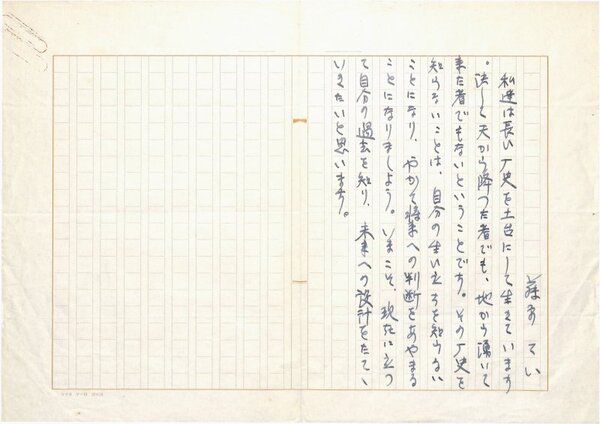 藤本てい
私達は長い厂史を土台にして生きています
。決して天から降つた者でも、地から湧いて
来た者でもないということです。その厂史を
知らないことは、自分の生い立ちを知らない
ことになり、やがて将来への判断をあやまる
ことになりましよう。いまこそ、現在に立つ
て自分の過去を知り、未来への設計をたてゝ
いきたいと思います。